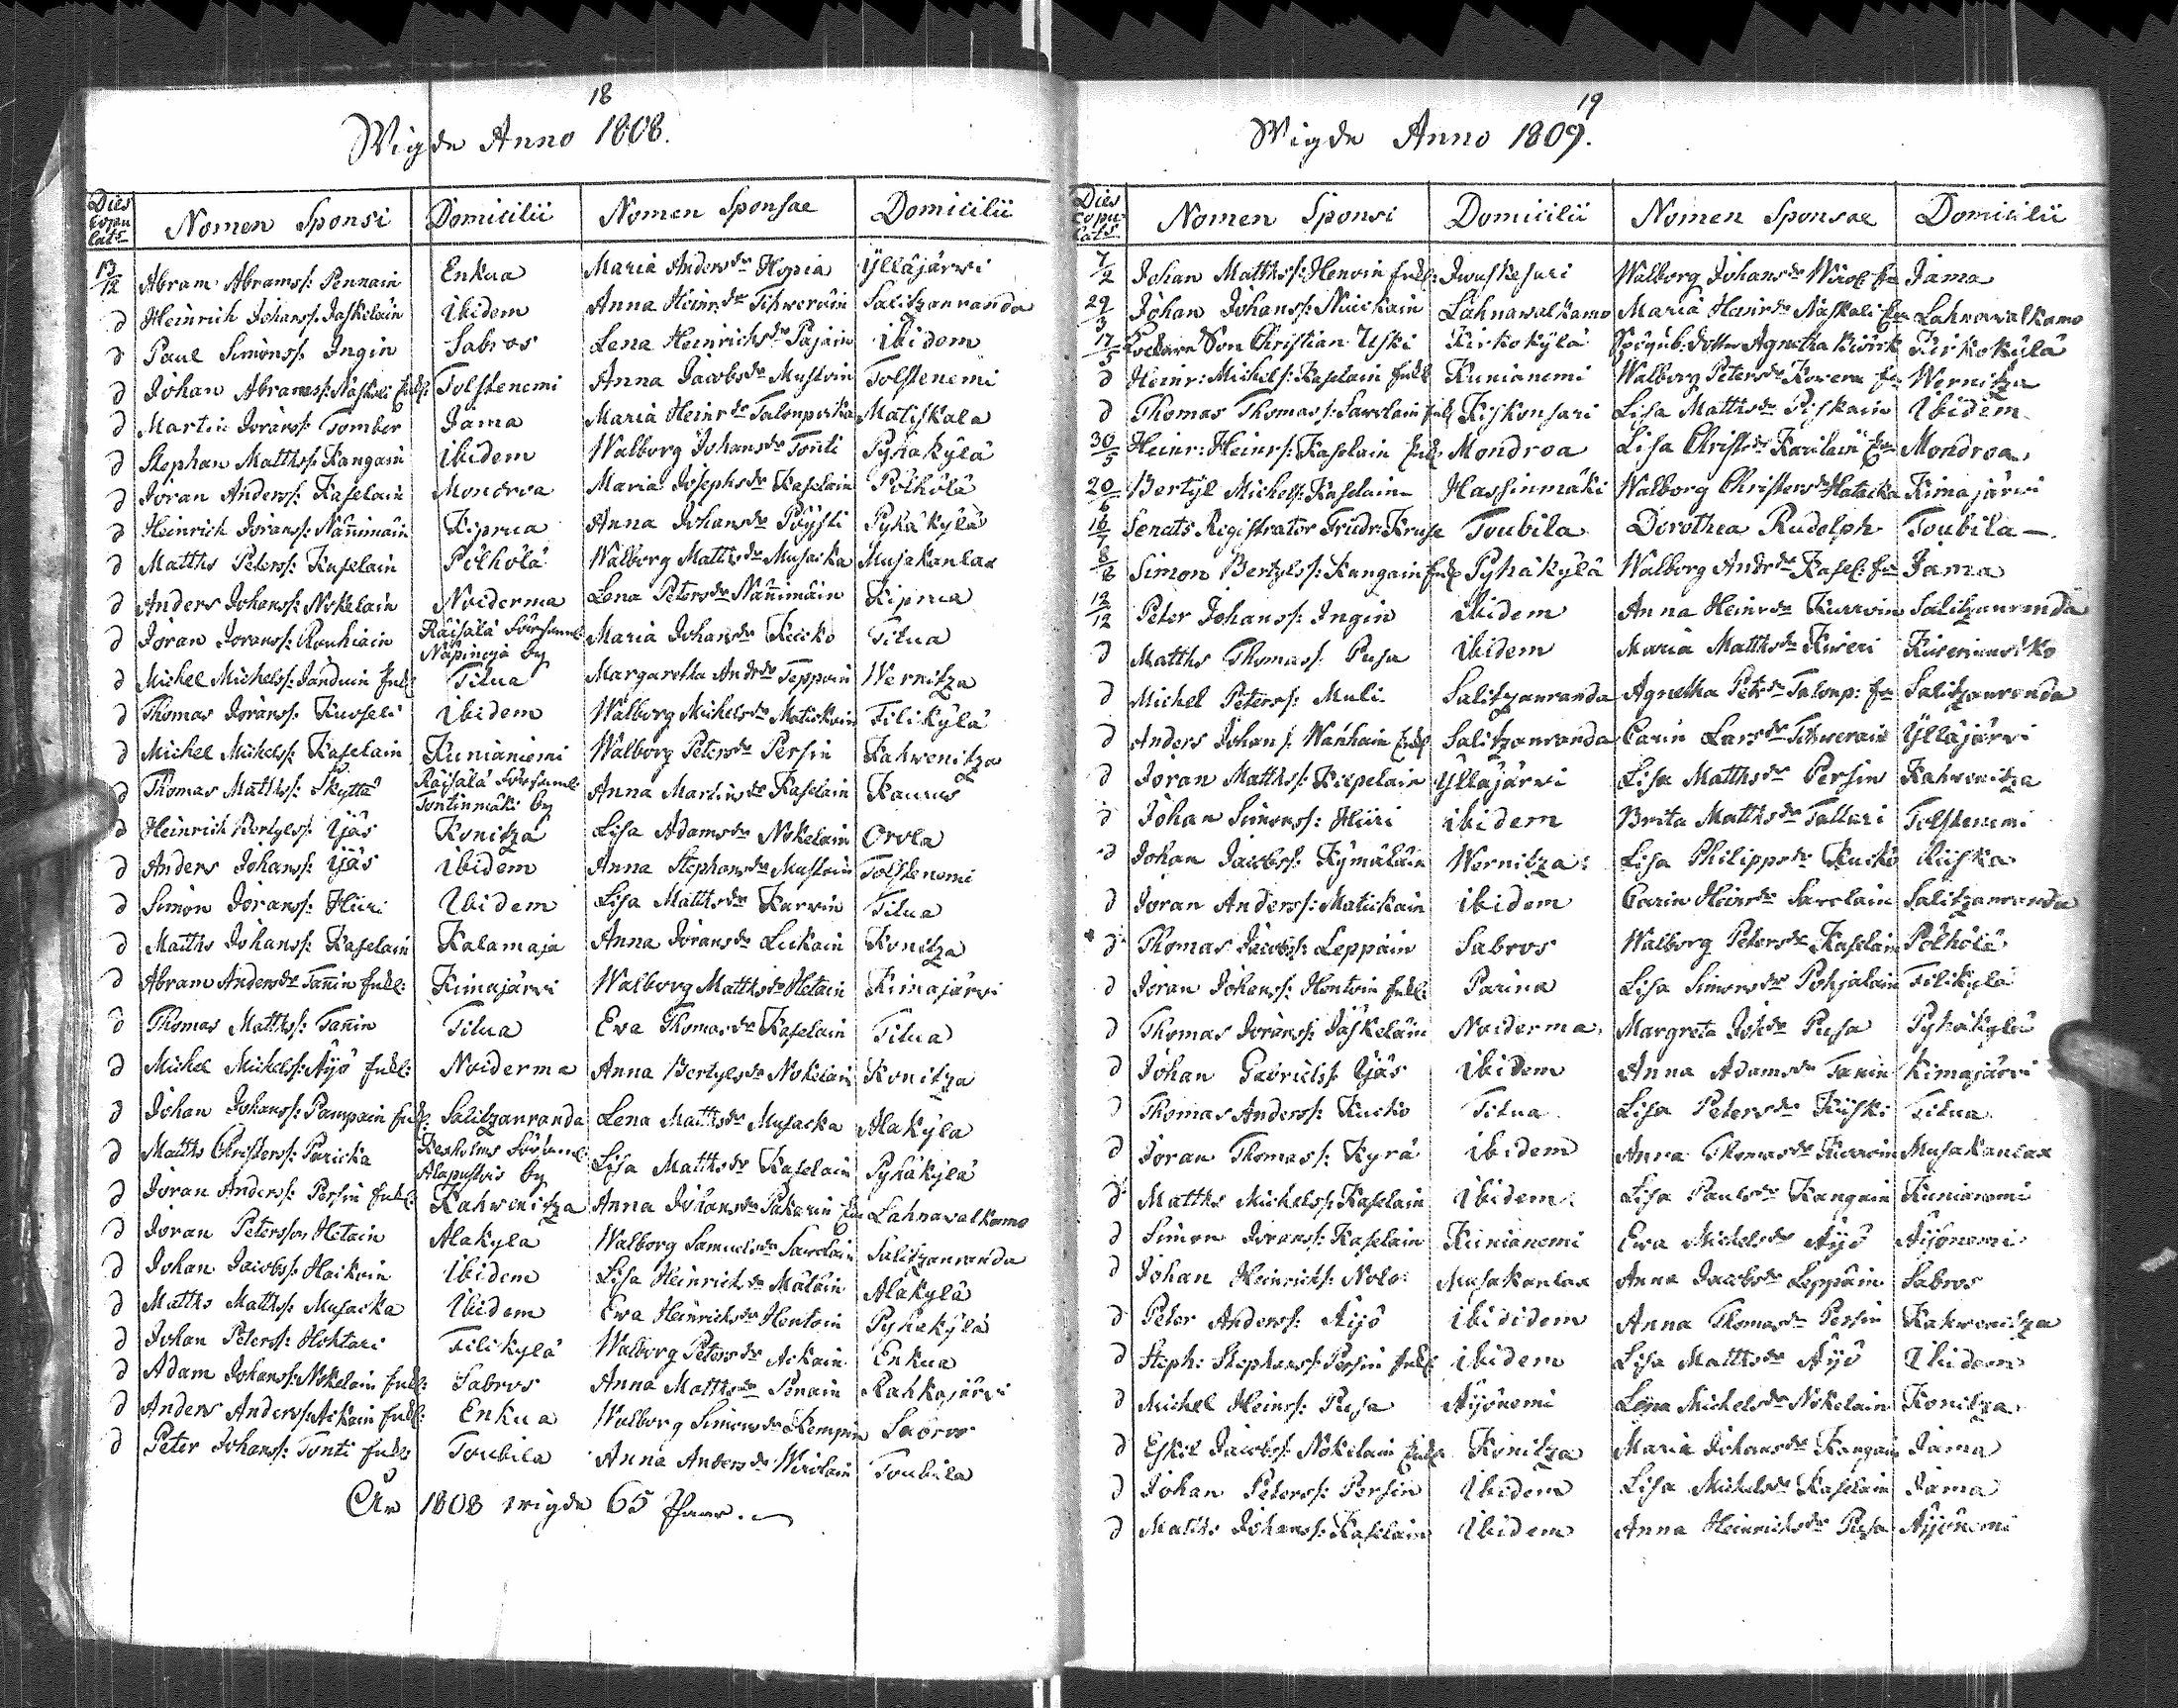 18
Wigde Anno 1808.
Dies Copulats Nomen Sponsi Domicilii Nomen Sponsae Domicilii
13/12 Abram Abrams: Pennain Enkua Maria Andersdr Hypia Ylläjärvi
d Heinrich Johans: Jaskelain Ibidem Anna Heinrdr Tihverain Salitzanranda
d Paul Simons: Ingin Sabros Lena Heinrichsdr Pajain ibidem
d Johan Abrams: Naskali Enkl: Tolstenemi Anna Jacobsdr Mustoin Tolstenemi
d Martin Jörans: Tomber Jama Maria Heinrdr Talonpoika Matiskala
d Stephan Matths: Kangain Ibidem Walborg Johansdr Tonti Pyhäkylä
d Jöran Anders: Kaselain Mondroa Maria Josephsdr Kaselain Pölhölä
d Heinrich Jörans: Näñimäin Kiprua Anna Johansdr Pöysti Pyhäkylä
d Matths Peters: Kaselain Pölhölä Walborg Matthsdr Musacka Musakanlax
d Anders Johans: Nokelain Noiderma Lena Petersdr Näñimäin Kiprua
d Jöran Jörans: Rouhiain Räisälä Församl: Näpinoja by Maria Johansdr Kuisko Titua
d Michel Michels: Jänduin Enkl: Titua Margaretha Andrdr Teppoin Wernitza
d Thomas Jörans: Kuoseli ibidem Walborg Michelsdr Matickain Tilikylä
d Michel Mickels: Kaselain Kunianiemi Walborg Petersdr Persin Kahwenitza
d Thomas Matths: Skyttä Räisälä Församl: Tontinmäki by Anna Martinsdr Kaselain Kaurus
d Heinrich Bertyls: Yjäs Konitza Lisa Adamsdr Nokelain Orola
d Anders Johans: Yjäs ibidem Anna Stephansdr Mustoin Tolstenemi
d Simon Jörans: Hiiri Ibidem Lisa Matthsdr Kurvin Titua
d Matths Johans: Kaselain Kalamaja Anna Jöransdr Luckain Konitza
d Abram Andersdr Tañin Enkl: Kimajärvi Walborg Matthsdr Hetain Kimajärvi
d Thomas Matths: Tañin Titua Eva Thomasdr Kaselain Titua
d Michel Mickels: Äyö Enkl: Noiderma Anna Bertylsdr Nokelain Konitza
d Johan Johans: Pampain Enkl: Salitzanranda Lena Matthsdr Musacka Alakylä
d Matths Christers: Paricka Kexholms Församl: Alapustois by Lisa Matthsdr Kaselain Pyhäkylä
d Jöran Anders: Persin Enkl: Kahwenitza Anna Johansdr Pakarin Enk Lahnavalkamo
d Jöran Petersson Hetain Alakylä Walborg Samuelsdr Savolain Salitzanranda
d Johan Jacobs: Haikoin Ibidem Lisa Heinrichsdr Mäläin Alakylä
d Matths Matths: Musacka Ibidem Eva Heinrichsdr Hentoin Pyhäkylä
d Johan Peters: Hohtari Tilikylä Walborg Petersdr Ackain Enkua
d Adam Johans: Nokelain Enkl: Sabros Anna Matthsdr Penain Rahkajärvi
d Anders Anders: Ackain Enkl: Enkua Walborg Simonsdr Kempin Sabros
d Peter Johans: Tonti Enkl: Toubila Anna Andersdr Wirolain Toubila
År 1808 wigde 65 Paar.
19
Wigde Anno 1809.
Dies copulats Nomen Sponsi Domicilii Nomen Sponsae Domicilii
7/2 Johan Matths: Henoin Enkl: Jouskesari Walborg Johansdr Wirol: Jama
29/3 Johan Johans: Nuickain Lahnavalkamo Maria Heinrdr Naskali Enk Lahnavalkamo
17/5 Son Christian Uski Kirkokylä Dotter Agnetha Kirkokylä
d Heinr: Michels: Kaselain Enkl Kunianemi Walborg Petersdr Kovera Wernitza
d Thomas Thomas: Savolain Enkl Kiskonsari Lisa Matthsdr Piskain Ibidem
30/5 Heinr: Heinrs: Kaselain Enkl Mondroa Lisa Christrdr Karilain Enk Mondroa
20/6 Bertyl Michels: Kaselain Hassinmäki Walborg Christersdr Hatacka Kimajärvi
16/7 Senats Registrator Friedr: Kruse Toubila Dorothea Rudolph Toubila —.
8/8 Simon Bertyls: Kangain Enkl Pyhäkylä Walborg Andrdr Kasel: Jama
12/12 Peter Johans: Ingin ibidem Anna Heinrdr Kurvin Salitzanranda
d Matths Thomas: Pusa ibidem Maria Matthsdr Kiveri
d Michel Peters: Muli Salitzanranda Agnetha Petrdr Talonp: Salitzanranda
d Anders Johans: Wanhain Enkl Salitzanranda Carin Larsdr Tihverain Ylläjärvi
d Jöran Matths: Kiepelain Ylläjärvi Lisa Matthsdr Persin Kahwenitza
d Johan Simons: Hiiri ibidem Brita Matthsdr Talturi Tolstenemi
d Johan Jacobs: Kymäläin Wernitza: Lisa Philippsdr Kuisko Riiska
d Jöran Anders: Matickain ibidem Carin Heinrdr Savolain Salitzanranda
d Thomas Jacobs: Leppäin Sabros Walborg Petersdr Kaselain Pölhölä
d Jöran Johans: Hentoin Enkl: Parina Lisa Simonsdr Pohjalain Tilikylä
d Thomas Jörans: Jäskeläin Noiderma Margreta Johdr Pusa Pyhäkylä
d Johan Gabriels: Yjäs ibidem Anna Adamsdr Tanin Kimajärvi
d Thomas Anders: Kuisko Titua Lisa Petersdr Kiiski Titua
d Jöran Thomas: Kyrä ibidem Anna Thomasdr Kurvoin Musakanlax
d Matths Michels: Kaselain ibidem Lisa Paulsdr Kangain Kunianemi
d Simon Jörans: Kaselain Kunianemi Eva Michelsdr Äyö Äyönemi
d Johan Heinrichs: Nolo Musakanlax Anna Jacobsdr Leppäin Sabros
d Peter Anders: Äyö ibididem Anna Thomasdr Persin Kahwenitza
d Steph: Stephans: Persin Enkl: ibidem Lisa Matthsdr Äyö Ibidem
d Michel Heinrs: Pusa Äyönemi Lena Michelsdr Nokelain Konitza
d Eskil Jacobs: Nokelain Enkl: Konitza Maria Johansdr Kangain Jama
d Johan Peters: Persin Ibidem Lisa Michelsdr Kaselain Jama
d Matths Johans: Kaselain Ibidem Anna Heinrichsdr Pusa Äyönemi